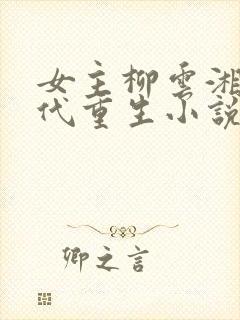 女主柳雲湘
代重生小説
卿之言